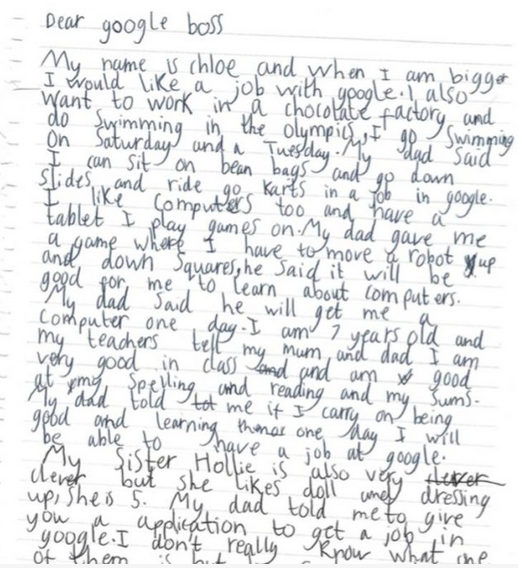 Dear google boss
My name is chloe and when I am bigger
I would like a job with google. I also
want to work in a chocolate factory and
do swimming in the olympics, I go swimming
on Saturday and a Tuesday. My dad said
I can sit on bean bags and go down
slides and ride go karts in a job in google.
I like computers too and have a
tablet I play games on. My dad gave me
a game where I have to move a robot up
and down squares, he said it will be
good for me to learn about computers.
My dad said he will get me a
computer one day. I am 7 years old and
my teachers tell my mum and dad I am
very good in class and and am good
at my spelling and reading and my sums.
My dad told me if I carry on being
good and learning one day I will
be able to have a job at google.
My sister Hollie is also very clever
clever but she likes doll and dressing
up, she is 5. My dad told me to give
you a application to get a job in
google. I don't really know what one
of them is but